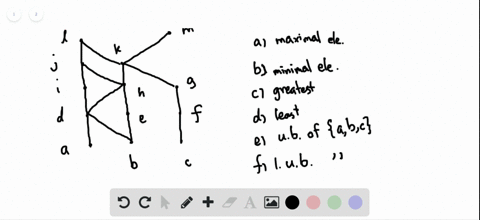 l
k
m
j
i
h
g
d
e
f
a
b
c
a) maximal ele.
b) minimal ele.
c) greatest
d) least
e) u.b. of {a,b,c}
f) l.u.b. "